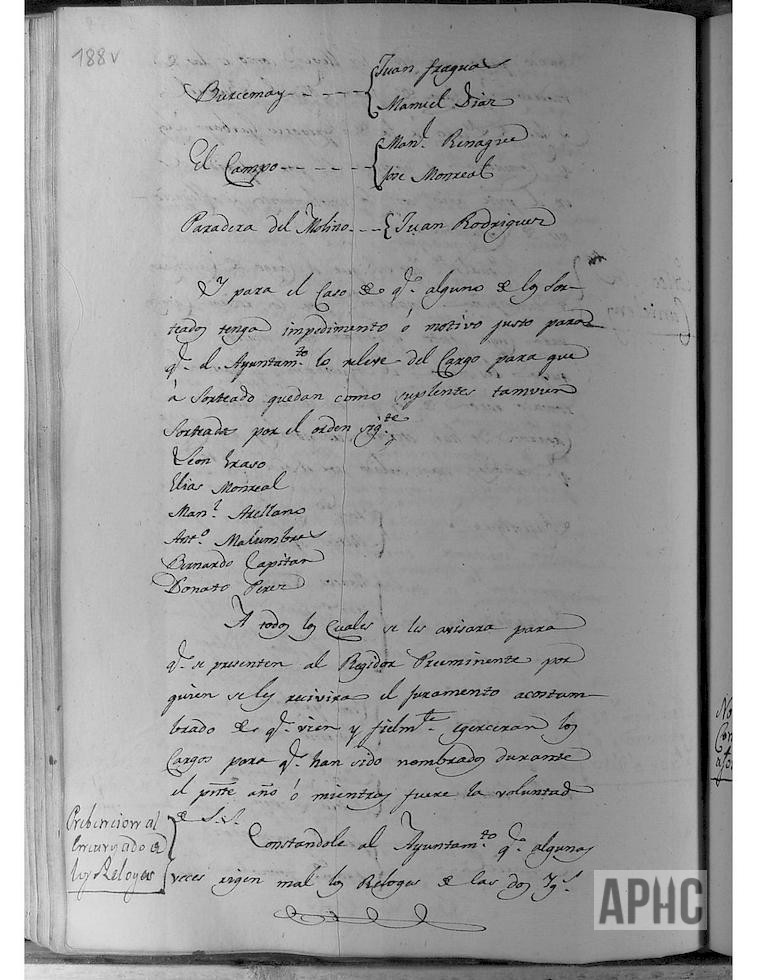 188v
Juan fraguas
Burcemay - - - - - {
Manuel Diaz
Man.l Renágree
El Campo - - - - - {
Jose Monreal
Paradera del Molino - - - { Juan Rodriguez
Y para el Caso de q.e alguno de los Sor-
teados tenga impedimento ó motivo justo para
q.e el Ayuntam.to lo releve del Cargo para que
á Sorteado quedan como suplentes tamvien
Sorteados por el orden sig.te
Leon Eraso
Elias Monreal
Man.l Arellano
Ant.o Malumbres
Bernardo Capitan
Donato Perez
A todos los Cuales se les avisara para
q.e se presenten al Regidor Preeminente por
quien se les recivira el Juramento acostum-
brado de q.e vien y fielm.te egerceran los
Cargos para q.e han sido nombrados durante
el pnte año ó mientras fuere la voluntad
de S.S.
Prebencion al
Encargado de
los Reloges
Constandole al Ayuntam.to q.e algunas
veces rigen mal los Reloges de las dos Yg.s
APHC